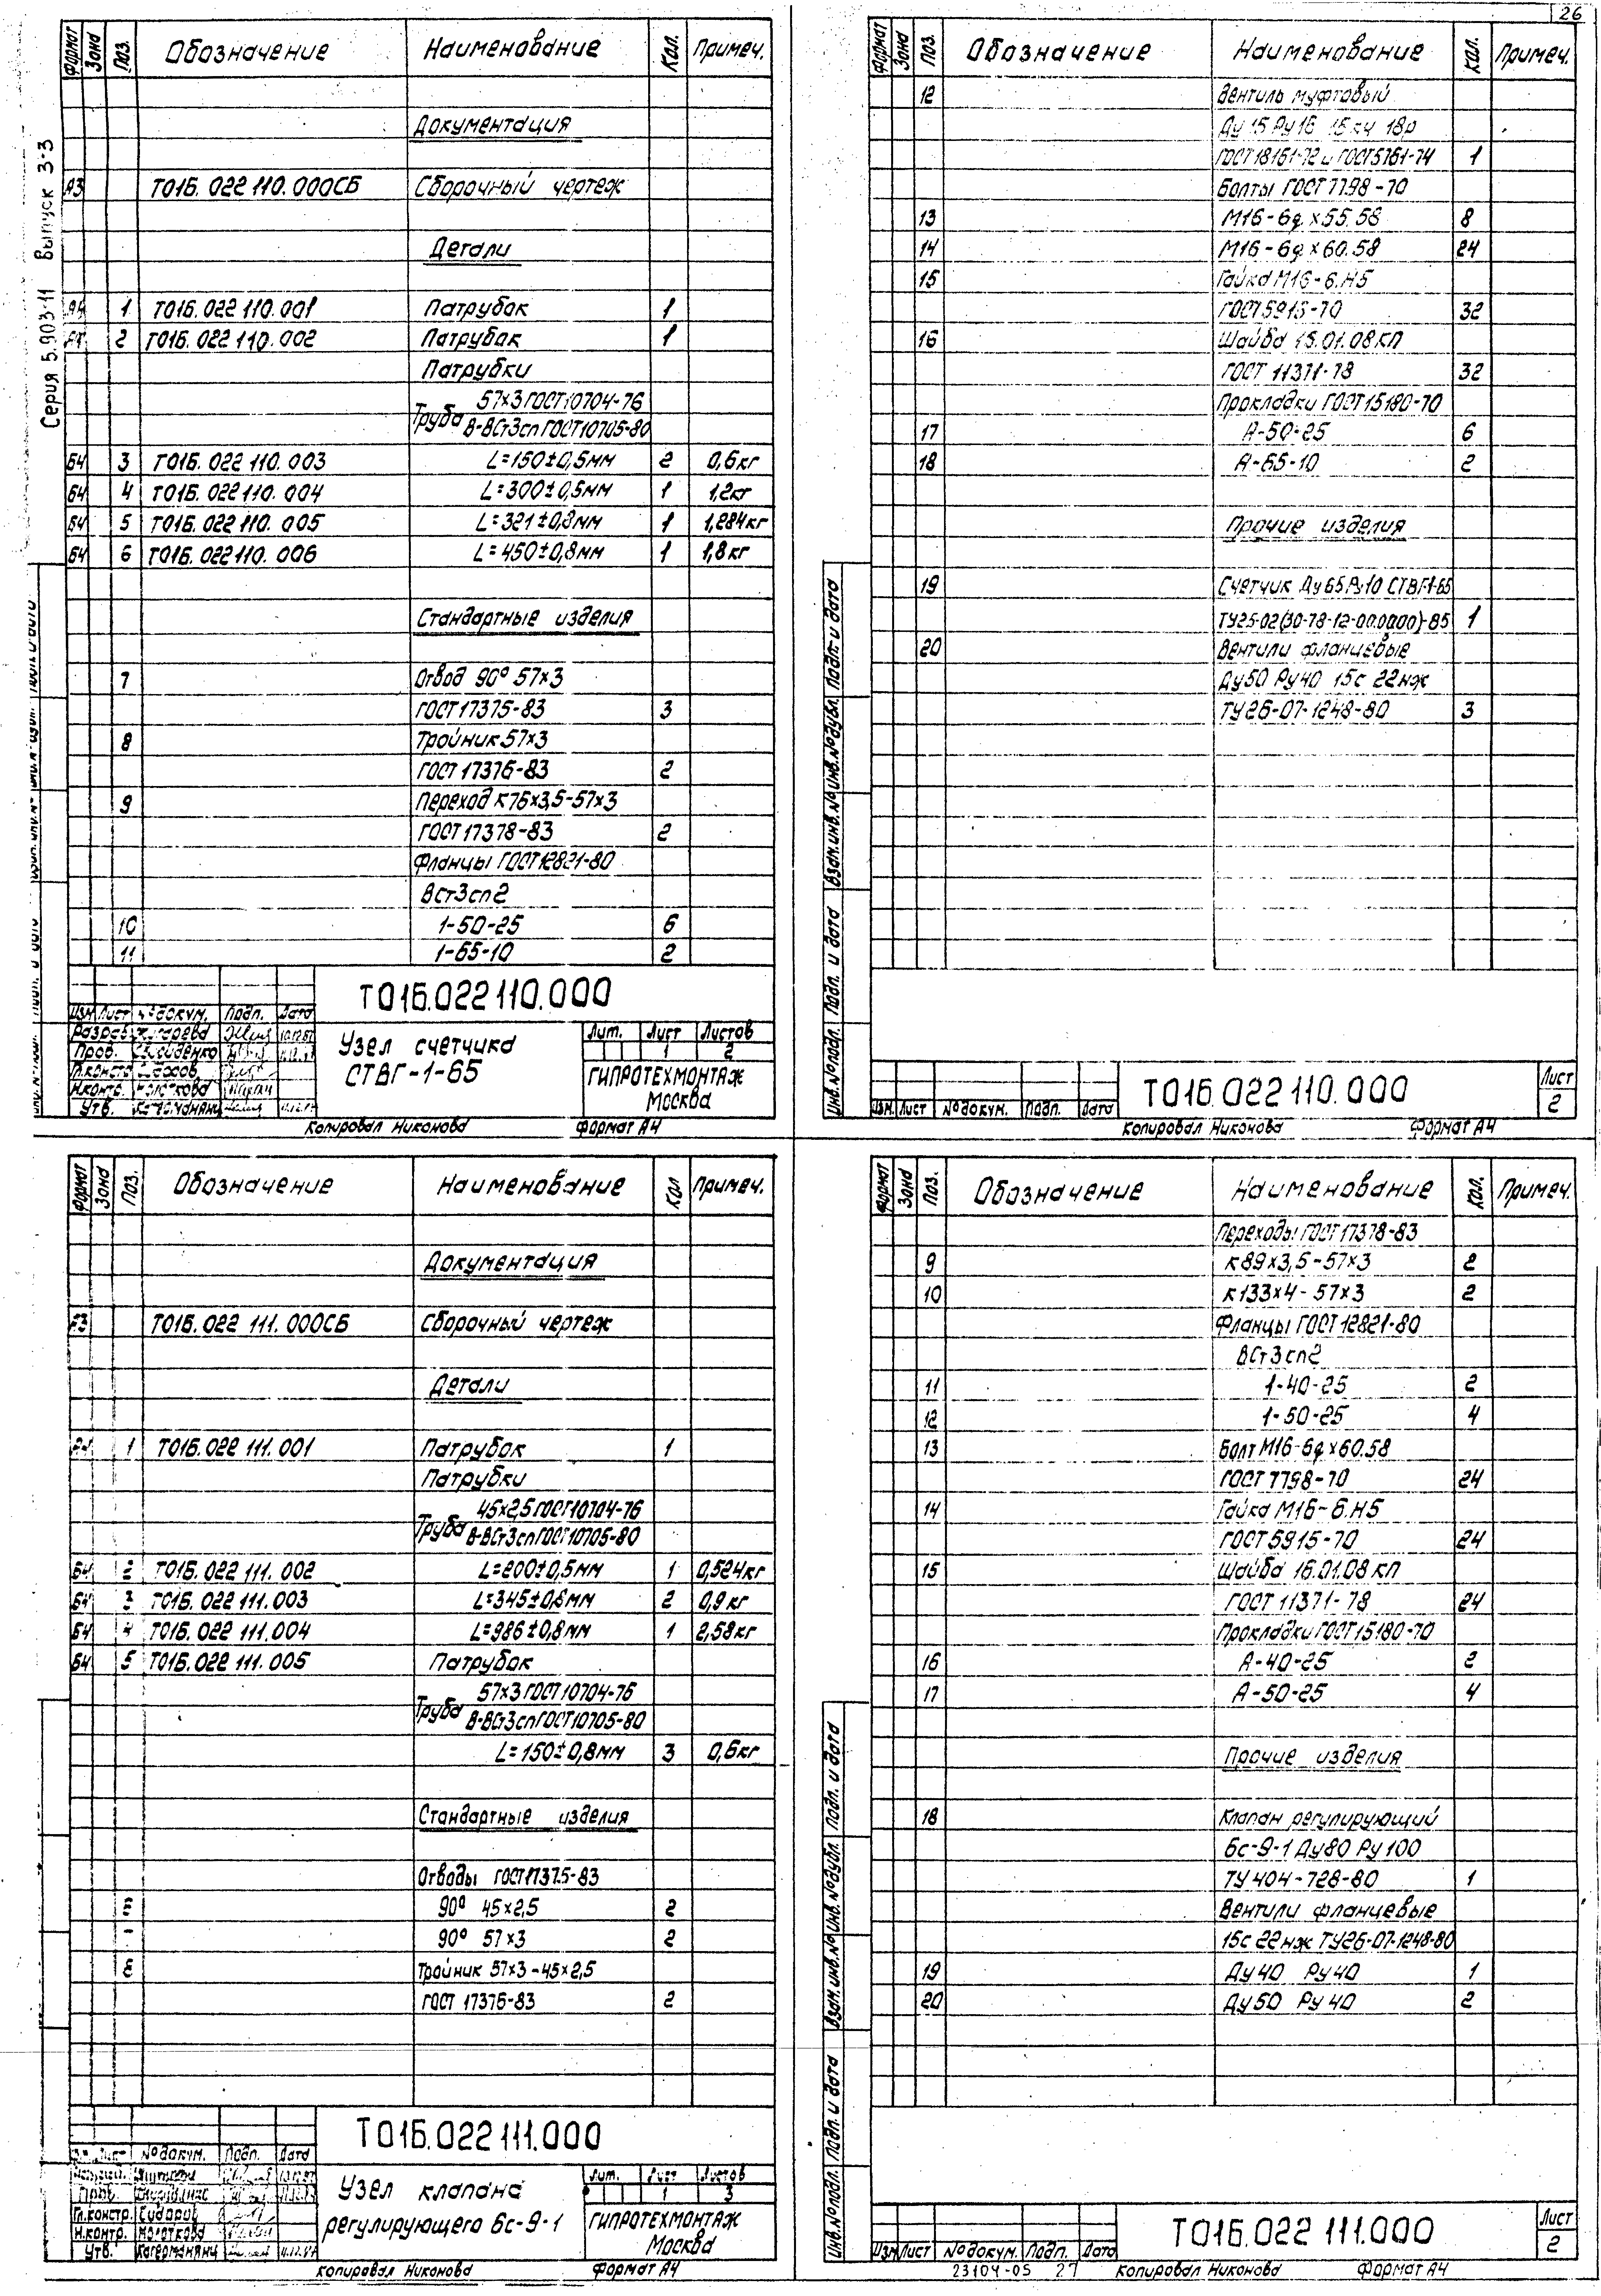 26
Серия 5.903-11 Выпуск 3-3
Формат Зона Поз. Обозначение Наименование Кол. Примеч.
Документация
А3 Т01Б.022 110.000СБ Сборочный чертеж
Детали
А4 1 Т01Б.022 110.001 Патрубок 1
2 Т01Б.022 110.002 Патрубок 1
Патрубки
57×3 ГОСТ10704-76
Труба В-ВСт3сп ГОСТ10705-80
Б4 3 Т01Б.022 110.003 L=150±0,5мм 2 0,6кг
Б4 4 Т01Б.022 110.004 L=300±0,5мм 1 1,2кг
Б4 5 Т01Б.022 110.005 L=321±0,8мм 1 1,284кг
Б4 6 Т01Б.022 110.006 L=450±0,8мм 1 1,8кг
Стандартные изделия
7 Отвод 90° 57×3
ГОСТ17375-83 3
8 Тройник 57×3
ГОСТ 17376-83 2
9 Переход К76×3,5-57×3
ГОСТ17378-83 2
Фланцы ГОСТ12821-80
ВСт3сп2
10 1-50-25 6
11 1-65-10 2
Т01Б.022 110.000
Изм. Лист №докум. Подп. Дата
Разраб.
Пров.
Гл.констр. Сидоров
Н.контр. Молоткова
Утв.
Узел счетчика
СТВГ-1-65
Лит. Лист Листов
1 2
ГИПРОТЕХМОНТАЖ
Москва
Копировал Никонова Формат А4
Формат Зона Поз. Обозначение Наименование Кол. Примеч.
12 Вентиль муфтовый
Ду 15 Ру 16 15 кч 18р
ГОСТ 18161-72 и ГОСТ5761-74 1
Болты ГОСТ 7798-70
13 М16-6g×55.58 8
14 М16-6g×60.58 24
15 Гайка М16-6.Н5
ГОСТ5915-70 32
16 Шайба 16.01.08КП
ГОСТ 11371-78 32
Прокладки ГОСТ15180-70
17 А-50-25 6
18 А-65-10 2
Прочие изделия
19 Счетчик Ду65Ру10 СТВГ-1-65
ТУ25-02(30-78-12-00.0000)-85 1
20 Вентили фланцевые
Ду50 Ру40 15с 22нж
ТУ26-07-1248-80 3
Инв.№подл. Подп. и дата Взам.инв.№ Инв.№дубл. Подп. и дата
Изм. Лист №докум. Подп. Дата
Т01Б.022 110.000
Лист
2
Копировал Никонова Формат А4
Формат Зона Поз. Обозначение Наименование Кол Примеч.
Документация
А3 Т01Б.022 111.000СБ Сборочный чертеж
Детали
1 Т01Б.022 111.001 Патрубок 1
Патрубки
45×2,5 ГОСТ10704-76
Труба В-ВСт3сп ГОСТ10705-80
Б4 2 Т01Б.022 111.002 L=200±0,5мм 1 0,524кг
Б4 3 Т01Б.022 111.003 L=345±0,8мм 2 0,9кг
Б4 4 Т01Б.022 111.004 L=986±0,8мм 1 2,58кг
Б4 5 Т01Б.022 111.005 Патрубок
57×3 ГОСТ10704-76
Труба В-ВСт3сп ГОСТ10705-80
L=150±0,8мм 3 0,6кг
Стандартные изделия
Отводы ГОСТ17375-83
6 90° 45×2,5 2
90° 57×3 2
8 Тройник 57×3-45×2,5
ГОСТ 17376-83 2
Т01Б.022 111.000
Лист №докум. Подп. Дата
Пров.
Гл.констр. Сидоров
Н.контр. Молоткова
Утв.
Узел клапана
регулирующего 6с-9-1
Лит. Лист Листов
1 3
ГИПРОТЕХМОНТАЖ
Москва
Копировал Никонова Формат А4
Формат Зона Поз. Обозначение Наименование Кол. Примеч.
Переходы ГОСТ17378-83
9 К89×3,5-57×3 2
10 К133×4-57×3 2
Фланцы ГОСТ12821-80
ВСт3сп2
11 1-40-25 2
12 1-50-25 4
13 Болт М16-6g×60.58
ГОСТ 7798-70 24
14 Гайка М16-6.Н5
ГОСТ5915-70 24
15 Шайба 16.01.08 КП
ГОСТ 11371-78 24
Прокладки ГОСТ15180-70
16 А-40-25 2
17 А-50-25 4
Прочие изделия
18 Клапан регулирующий
6с-9-1 Ду80 Ру100
ТУ 404-728-80 1
Вентили фланцевые
15с 22нж ТУ26-07-1248-80
19 Ду40 Ру40 1
20 Ду50 Ру40 2
Инв.№подл. Подп. и дата Взам.инв.№ Инв.№дубл. Подп. и дата
Изм. Лист №докум. Подп. Дата
Т01Б.022 111.000
Лист
2
23104-05 27 Копировал Никонова Формат А4